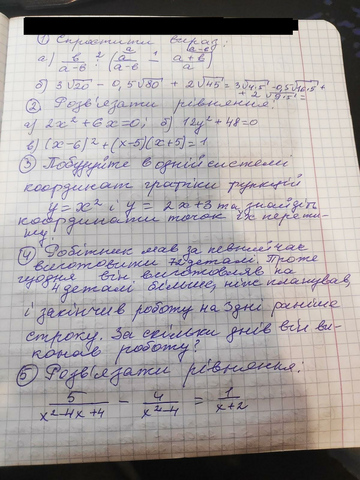 ① Спростити вираз:
а) в/(а-в) : (а/(а-в) - (а+в)/а)
б) 3√20 - 0,5√80 + 2√45 = 3√4·5 - 0,5√16·5 +
+ 2√9·5 =
② Розв'язати рівняння:
а) 2x² + 6x = 0; б) 12y² + 48 = 0
в) (x-6)² + (x-5)(x+5) = 1
③ Побудуйте в одній системі
координат графіки функцій
y = x² і y = 2x+3 та знайдіть
координати точок їх перети-
ну.
④ Робітник мав за певний час
виготовити 72 деталі. Проте
щодня він виготовляв на
4 деталі більше, ніж планував,
і закінчив роботу на 3 дні раніше
строку. За скільки днів він ви-
конав роботу?
⑤ Розв'язати рівняння:
5/(x²-4x+4) - 4/(x²-4) = 1/(x+2)